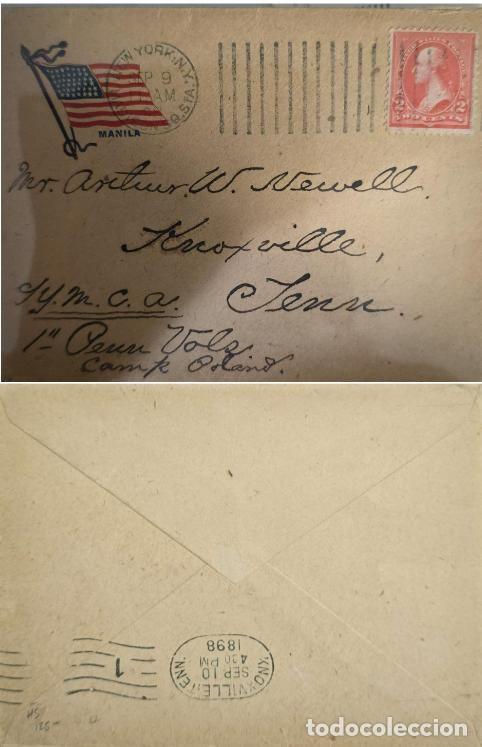 NEW YORK, N.Y.
SEP 9
AM
SQ. STA.
MANILA
2 2
TWO CENTS
Mr. Arthur W. Newell.
Knoxville,
Y.M.C.A. Tenn.
1st Penn Vols
Camp Poland.
KNOXVILLE, TENN.
SEP 10
4 30 PM
1898
1
125-
todocoleccion